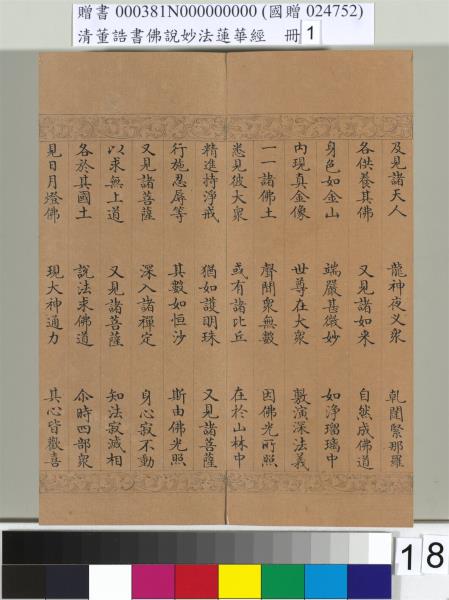 贈書 000381N000000000 (國贈 024752)
清董誥書佛說妙法蓮華經 冊 1
及見諸天人 龍神夜叉衆 乹闥緊那羅
各供養其佛 又見諸如来 自然成佛道
身色如金山 端嚴甚微妙 如淨瑠璃中
内現真金像 世尊在大衆 敷演深法義
一一諸佛土 聲聞衆無數 因佛光所照
悉見彼大衆 或有諸比丘 在於山林中
精進持淨戒 猶如護明珠 又見諸菩薩
行施忍辱等 其數如恒沙 斯由佛光照
又見諸菩薩 深入諸禪定 身心寂不動
以求無上道 又見諸菩薩 知法寂滅相
各於其國土 說法求佛道 尒時四部衆
見日月燈佛 現大神通力 其心皆歡喜
18